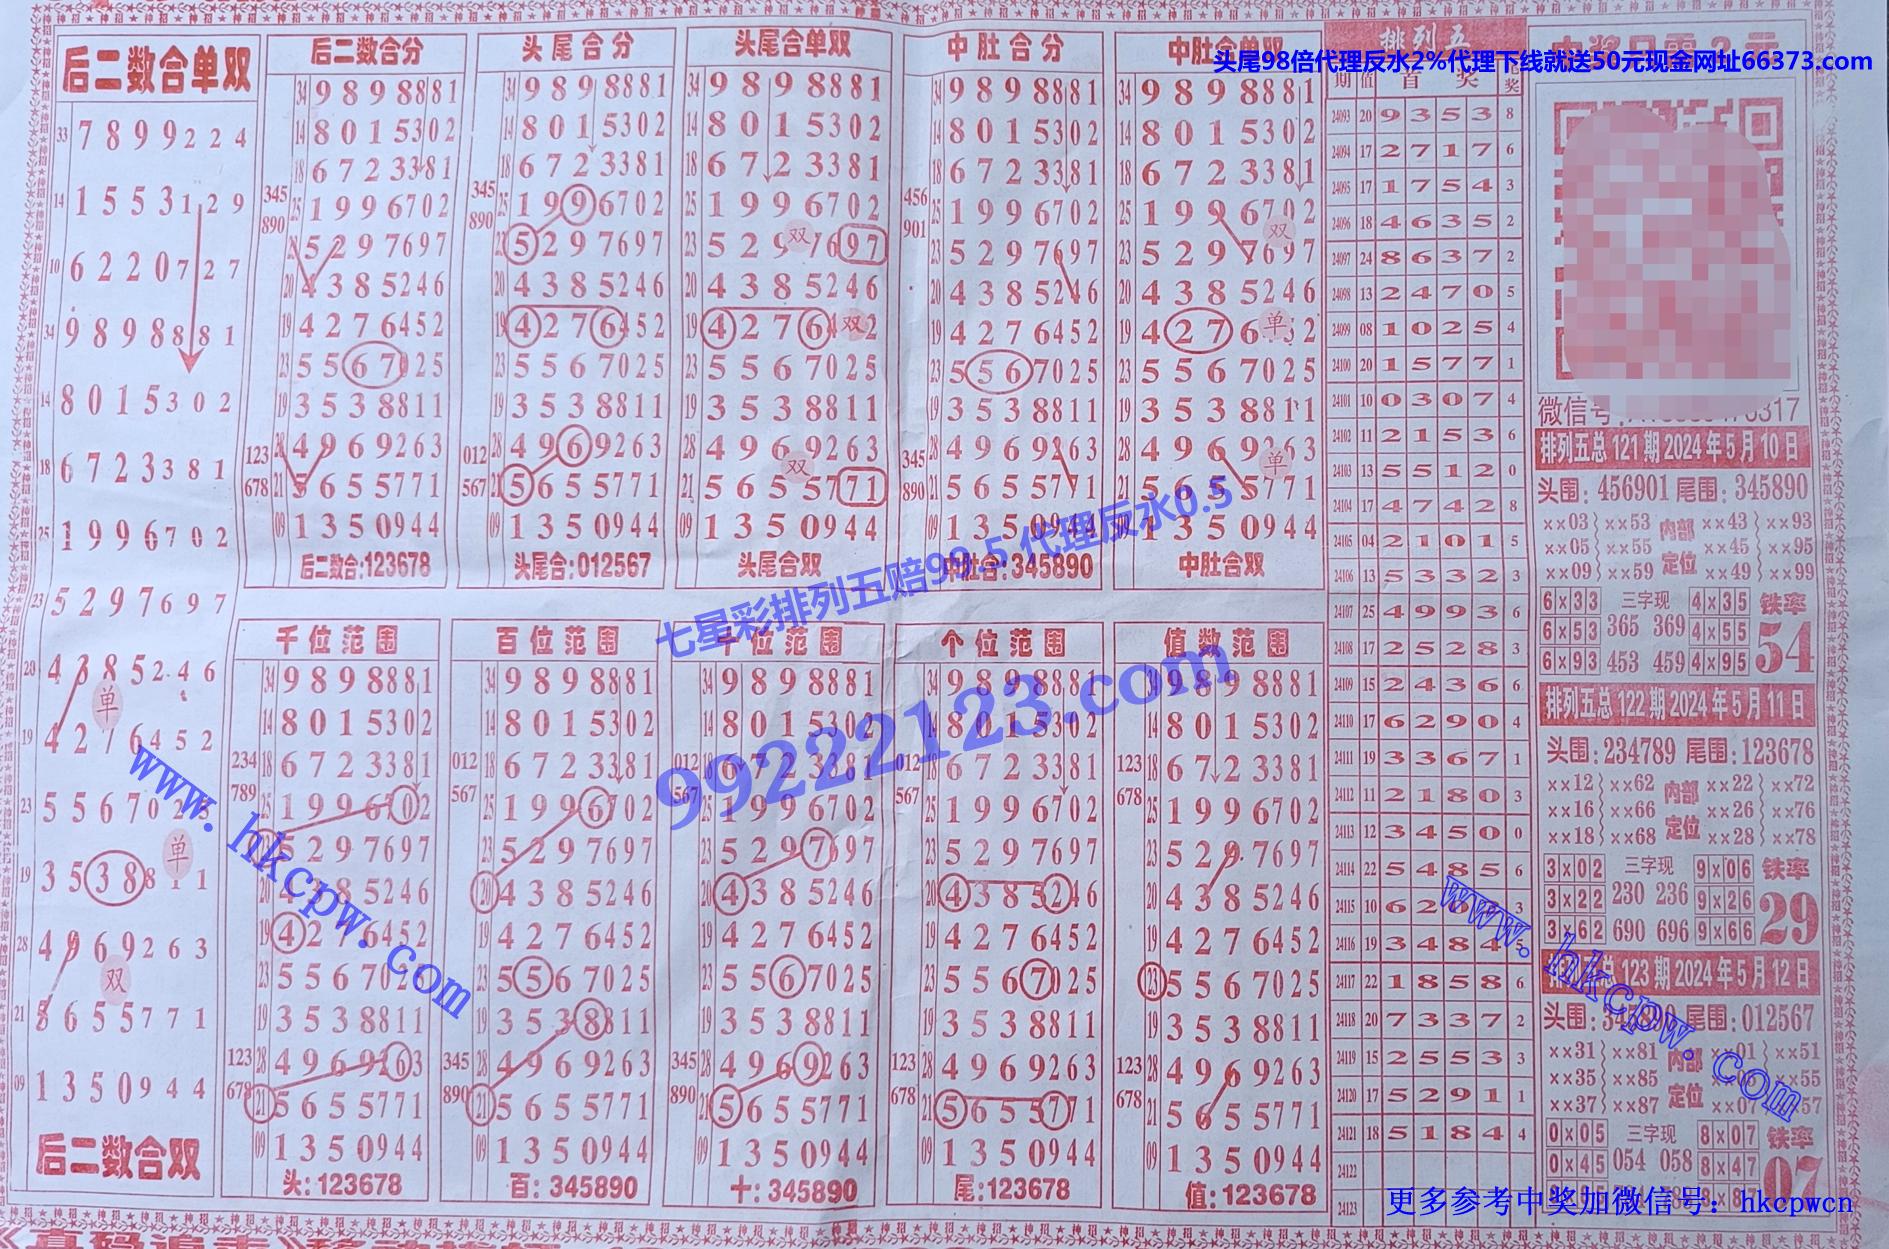 后二数合单双
33 7 8 9 9 2 2 4
14 1 5 5 3 1 2 9
10 6 2 2 0 7 2 7
34 9 8 9 8 8 8 1
14 8 0 1 5 3 0 2
18 6 7 2 3 3 8 1
25 1 9 9 6 7 0 2
23 5 2 9 7 6 9 7
20 4 3 8 5 2 4 6
单
19 4 2 7 6 4 5 2
23 5 5 6 7 0 2 5
单
19 3 5 3 8 8 1 1
28 4 9 6 9 2 6 3
双
21 5 6 5 5 7 7 1
09 1 3 5 0 9 4 4
后二数合双
后二数合分
34 9 8 9 8 8 8 1
14 8 0 1 5 3 0 2
18 6 7 2 3 3 8 1
345
890
25 1 9 9 6 7 0 2
23 5 2 9 7 6 9 7
20 4 3 8 5 2 4 6
19 4 2 7 6 4 5 2
23 5 5 6 7 0 2 5
19 3 5 3 8 8 1 1
123
678
28 4 9 6 9 2 6 3
21 5 6 5 5 7 7 1
09 1 3 5 0 9 4 4
后二数合:123678
头尾合分
34 9 8 9 8 8 8 1
14 8 0 1 5 3 0 2
18 6 7 2 3 3 8 1
345
890
25 1 9 9 6 7 0 2
23 5 2 9 7 6 9 7
20 4 3 8 5 2 4 6
19 4 2 7 6 4 5 2
23 5 5 6 7 0 2 5
19 3 5 3 8 8 1 1
012
567
28 4 9 6 9 2 6 3
21 5 6 5 5 7 7 1
09 1 3 5 0 9 4 4
头尾合:012567
头尾合单双
34 9 8 9 8 8 8 1
14 8 0 1 5 3 0 2
18 6 7 2 3 3 8 1
25 1 9 9 6 7 0 2
双
23 5 2 9 7 6 9 7
20 4 3 8 5 2 4 6
19 4 2 7 6 4 5 2
双
23 5 5 6 7 0 2 5
19 3 5 3 8 8 1 1
28 4 9 6 9 2 6 3
双
21 5 6 5 5 7 7 1
09 1 3 5 0 9 4 4
头尾合双
中肚合分
34 9 8 9 8 8 8 1
14 8 0 1 5 3 0 2
18 6 7 2 3 3 8 1
456
901
25 1 9 9 6 7 0 2
23 5 2 9 7 6 9 7
20 4 3 8 5 2 4 6
19 4 2 7 6 4 5 2
23 5 5 6 7 0 2 5
19 3 5 3 8 8 1 1
345
890
28 4 9 6 9 2 6 3
21 5 6 5 5 7 7 1
09 1 3 5 0 9 4 4
中肚合:345890
中肚合单双
34 9 8 9 8 8 8 1
14 8 0 1 5 3 0 2
18 6 7 2 3 3 8 1
25 1 9 9 6 7 0 2
双
23 5 2 9 7 6 9 7
20 4 3 8 5 2 4 6
19 4 2 7 6 4 5 2
单
23 5 5 6 7 0 2 5
19 3 5 3 8 8 1 1
28 4 9 6 9 2 6 3
单
21 5 6 5 5 7 7 1
09 1 3 5 0 9 4 4
中肚合双
千位范围
34 9 8 9 8 8 8 1
14 8 0 1 5 3 0 2
234
789
18 6 7 2 3 3 8 1
25 1 9 9 6 7 0 2
23 5 2 9 7 6 9 7
20 4 3 8 5 2 4 6
19 4 2 7 6 4 5 2
23 5 5 6 7 0 2 5
19 3 5 3 8 8 1 1
123
678
28 4 9 6 9 2 6 3
21 5 6 5 5 7 7 1
09 1 3 5 0 9 4 4
头:123678
百位范围
34 9 8 9 8 8 8 1
14 8 0 1 5 3 0 2
012
567
18 6 7 2 3 3 8 1
25 1 9 9 6 7 0 2
23 5 2 9 7 6 9 7
20 4 3 8 5 2 4 6
19 4 2 7 6 4 5 2
23 5 5 6 7 0 2 5
19 3 5 3 8 8 1 1
345
890
28 4 9 6 9 2 6 3
21 5 6 5 5 7 7 1
09 1 3 5 0 9 4 4
百:345890
位范围
34 9 8 9 8 8 8 1
14 8 0 1 5 3 0 2
012
567
18 6 7 2 3 3 8 1
25 1 9 9 6 7 0 2
23 5 2 9 7 6 9 7
20 4 3 8 5 2 4 6
19 4 2 7 6 4 5 2
23 5 5 6 7 0 2 5
19 3 5 3 8 8 1 1
345
890
28 4 9 6 9 2 6 3
21 5 6 5 5 7 7 1
09 1 3 5 0 9 4 4
十:345890
个位范围
34 9 8 9 8 8 8 1
14 8 0 1 5 3 0 2
012
567
18 6 7 2 3 3 8 1
25 1 9 9 6 7 0 2
23 5 2 9 7 6 9 7
20 4 3 8 5 2 4 6
19 4 2 7 6 4 5 2
23 5 5 6 7 0 2 5
19 3 5 3 8 8 1 1
123
678
28 4 9 6 9 2 6 3
21 5 6 5 5 7 7 1
09 1 3 5 0 9 4 4
尾:123678
值数范围
34 9 8 9 8 8 8 1
14 8 0 1 5 3 0 2
123
678
18 6 7 2 3 3 8 1
25 1 9 9 6 7 0 2
23 5 2 9 7 6 9 7
20 4 3 8 5 2 4 6
19 4 2 7 6 4 5 2
23 5 5 6 7 0 2 5
19 3 5 3 8 8 1 1
123
678
28 4 9 6 9 2 6 3
21 5 6 5 5 7 7 1
09 1 3 5 0 9 4 4
值:123678
排列五
期 值 首 奖
24093 20 9 3 5 3 8
24094 17 2 7 1 7 6
24095 17 1 7 5 4 3
24096 18 4 6 3 5 2
24097 24 8 6 3 7 2
24098 13 2 4 7 0 5
24099 08 1 0 2 5 4
24100 20 1 5 7 7 1
24101 10 0 3 0 7 4
24102 11 2 1 5 3 6
24103 13 5 5 1 2 0
24104 17 4 7 4 2 8
24105 04 2 1 0 1 5
24106 13 5 3 3 2 3
24107 25 4 9 9 3 6
24108 17 2 5 2 8 3
24109 15 2 4 3 6 6
24110 17 6 2 9 0 4
24111 19 3 3 6 7 1
24112 11 2 1 8 0 3
24113 12 3 4 5 0 0
24114 22 5 4 8 5 6
24115 10 6 2 0 3
24116 19 3 4 8 4 5
24117 22 1 8 5 8 6
24118 20 7 3 3 7 2
24119 15 2 5 5 3 3
24120 17 5 2 9 1 1
24121 18 5 1 8 4 4
24122
24123
头尾98倍代理反水2%代理下线就送50元现金网址66373.com
微信号
排列五总 121 期 2024 年 5 月 10 日
头围: 456901 尾围: 345890
××03 ××53 内部 ××43 ××93
××05 ××55 定位 ××45 ××95
××09 ××59 ××49 ××99
6×33 三字现 4×35 铁率
6×53 365 369 4×55 54
6×93 453 459 4×95
排列五总 122 期 2024 年 5 月 11 日
头围: 234789 尾围: 123678
××12 ××62 内部 ××22 ××72
××16 ××66 定位 ××26 ××76
××18 ××68 ××28 ××78
3×02 三字现 9×06 铁率
3×22 230 236 9×26 29
3×62 690 696 9×66
总 123 期 2024 年 5 月 12 日
头围: 尾围: 012567
××31 ××81 内部 ××01 ××51
××35 ××85 定位 ××55
××37 ××87 ××07 ×57
0×05 三字现 8×07 铁率
0×45 054 058 8×47 07
8×87
七星彩排列五赔99.5 代理反水0.5
99222123.com
www.hkcpw.com
www.hkcpw.com
更多参考中奖加微信号: hkcpwcn